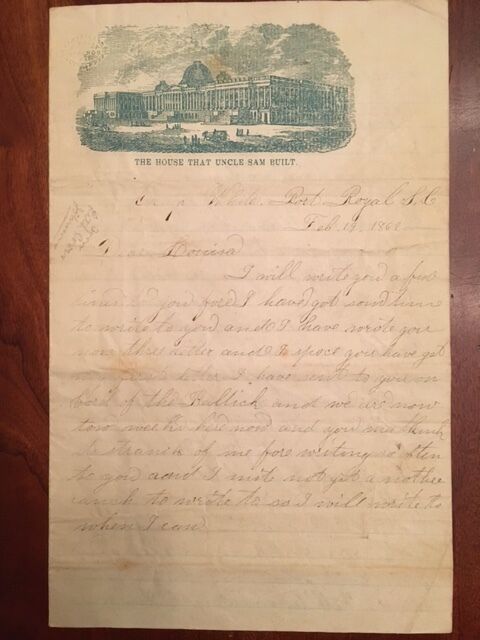 THE HOUSE THAT UNCLE SAM BUILT.
Port Royal S.C
Feb. 19, 1862
Dear Louisa
I will write you a few
lines to you fore I have got som time
to write to you and I have wrote you
now three letter and I spose you have got
letter I have sent to you on
bord of the and we are now
tow weeks here now and you may think
it strange of me fore writing so often
to you and I mite not get a nother
to write to so I will write to
when I can